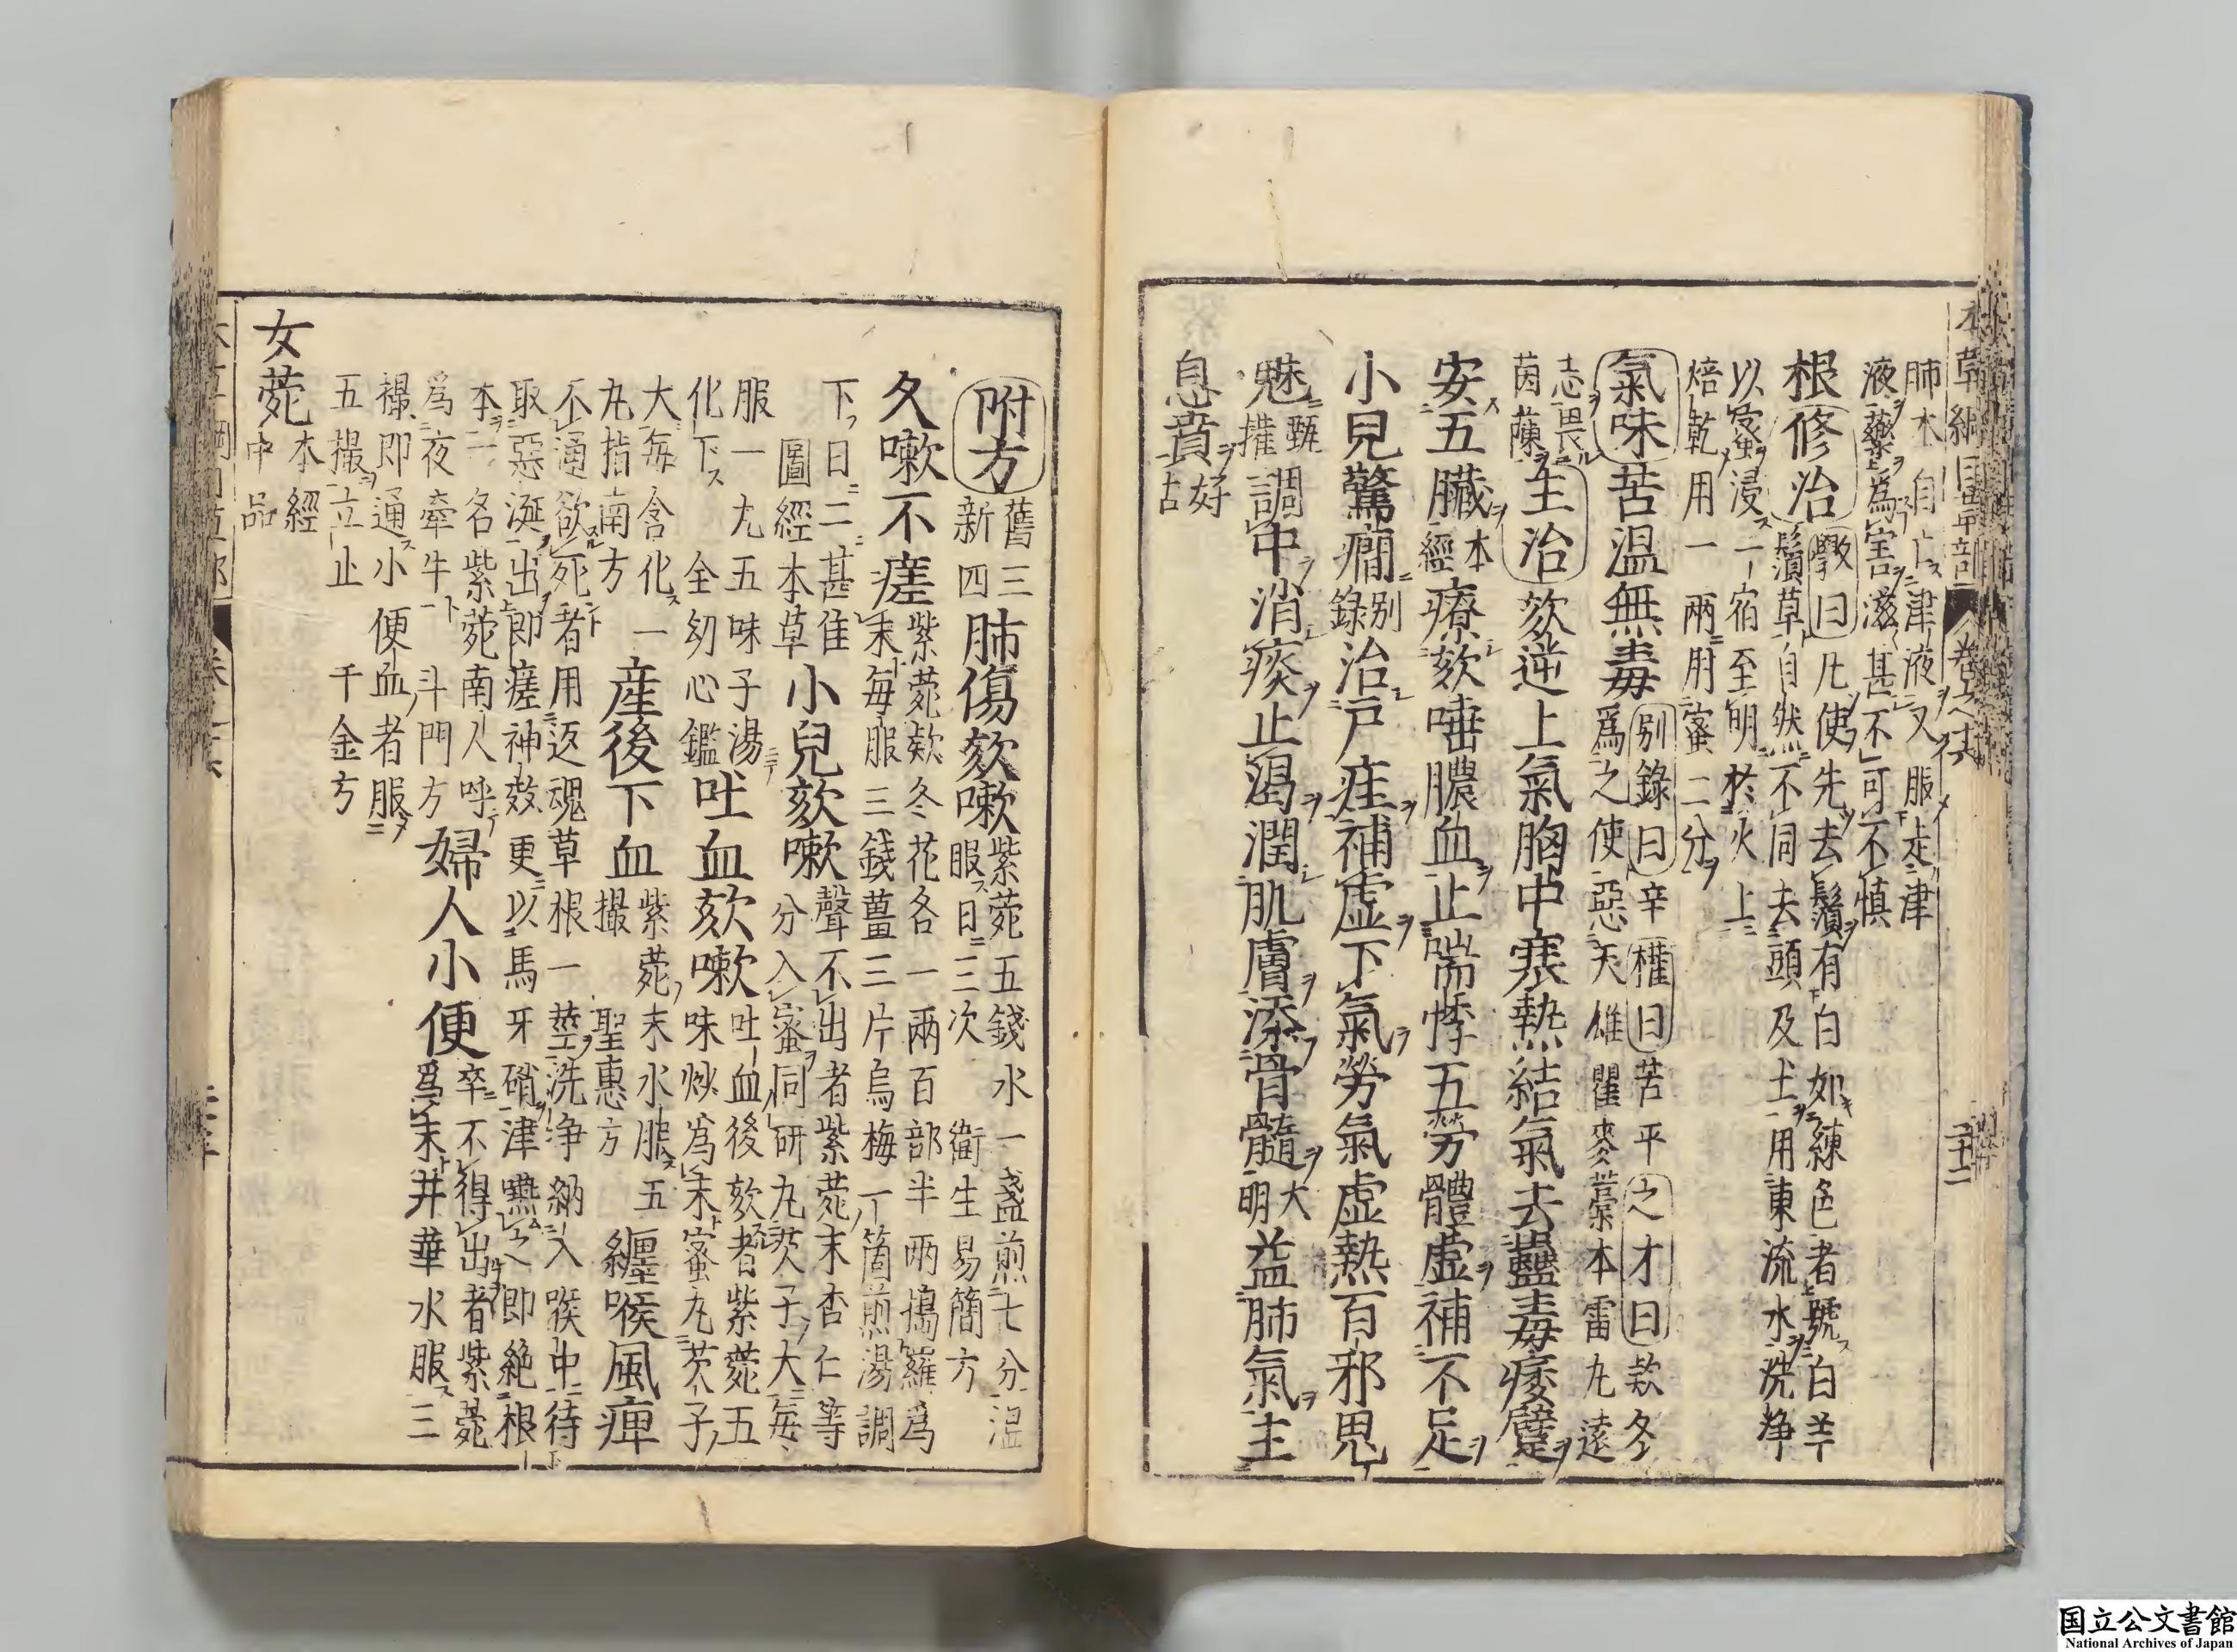 本草綱目草部 卷之十六
肺本自亡津液又服走津
液藥爲害滋甚不可不慎
根修治斆曰凡使先去鬚有白如練色者號白羊
鬚草自然不同去頭及土用東流水洗浄
以蜜浸一宿至明於火上
焙乾用一兩用蜜二分
氣味苦温無毒別錄曰辛權曰苦平之才曰款冬
爲之使惡天雄瞿麥藁本雷丸遠
志畏
茵蔯主治欬逆上氣胸中寒熱結氣去蠱毒痿躄
安五臟本經療欬唾膿血止喘悸五勞體虛補不足
小兒驚癇別錄治尸疰補虛下氣勞氣虛熱百邪鬼
魅甄權調中消痰止渴潤肌膚添骨髓大明益肺氣主
息賁好古
附方舊三新四肺傷欬嗽紫菀五錢水一盞煎七分温
服日三次 衞生易簡方
久嗽不瘥紫菀欵冬花各一兩百部半兩搗羅爲
末每服三錢薑三片烏梅一箇煎湯調
下日二甚佳
圖經本草小兒欬嗽聲不出者紫菀末杏仁等
分入蜜同研丸芡子大每
服一丸五味子湯
化下 全幼心鑑吐血欬嗽吐血後欬者紫菀五
味炒爲末蜜丸芡子
大每含化一
丸指南方産後下血紫菀末水服五
撮 聖惠方纒喉風痺
不通欲死者用返魂草根一莖洗浄納入喉中待
取惡涎出即瘥神效更以馬牙硝津嚥之即絶根
本一名紫菀南人呼
爲夜牽牛 斗門方婦人小便卒不得出者紫菀
爲末井華水服三
撮即通小便血者服
五撮立止 千金方
女菀本經中品
国立公文書館
National Archives of Japan